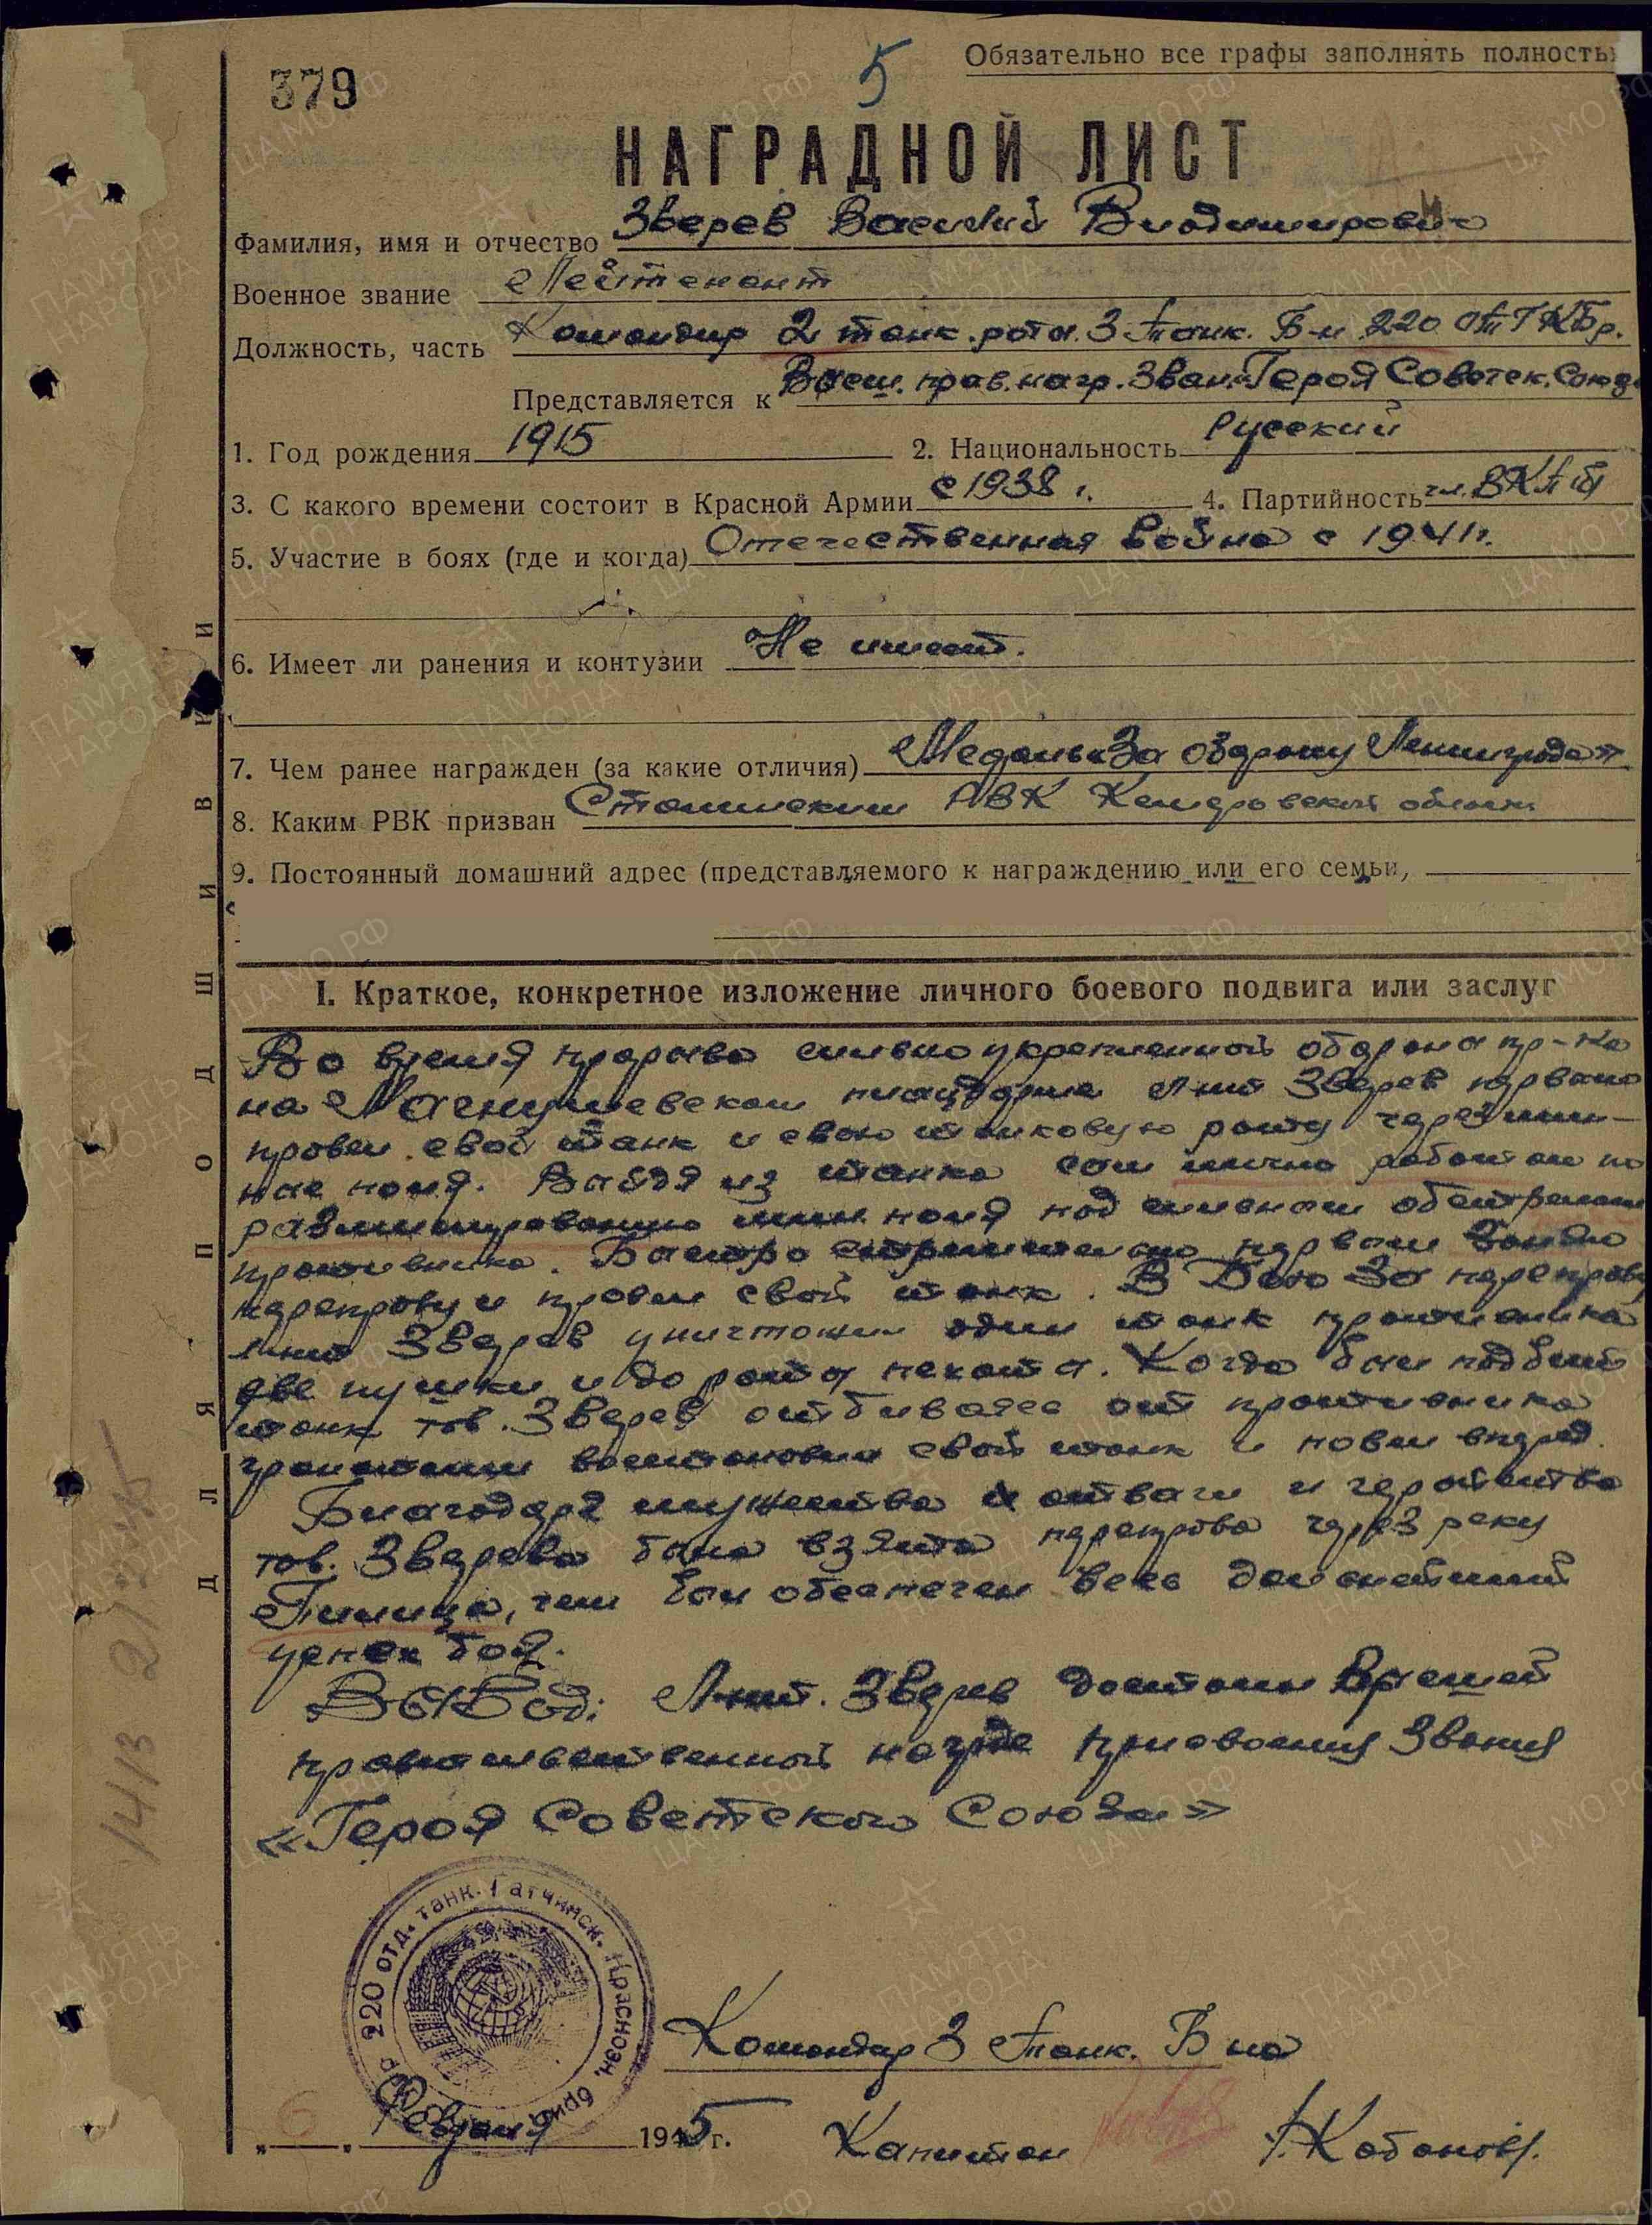 Обязательно все графы заполнять полность
379
5
НАГРАДНОЙ ЛИСТ
Фамилия, имя и отчество Зверев Василий Владимирович
Военное звание Лейтенант
Должность, часть Командир 2 танк. роты. 3 Танк. Б-н 220 ОТГКБр.
Представляется к Высш. прав. нагр. Зван. "Героя Советск. Союз
1. Год рождения 1915 2. Национальность Русский
3. С какого времени состоит в Красной Армии с 1938 г. 4. Партийность чл. ВКПб
5. Участие в боях (где и когда) Отечественная война с 1941 г.
6. Имеет ли ранения и контузии Не имеет.
7. Чем ранее награжден (за какие отличия) Медаль "За оборону Ленинграда"
8. Каким РВК призван Сталинским РВК Кемеровской области
9. Постоянный домашний адрес (представляемого к награждению или его семьи,
I. Краткое, конкретное изложение личного боевого подвига или заслуг
Во время прорыва сильно укрепленной обороны пр-ка
на Магнушевском плацдарме л-нт Зверев первым
провел свой танк и свою танковую роту через мин-
ные поля. Выйдя из танка сам лично работал по
разминированию мин. поля под сильным обстрелом
противника. Быстро стремительно первым занял
переправу и провел свой танк. В Бою За переправу
л-нт Зверев уничтожил один танк противника
две пушки и до роты пехоты. Когда был подбит
танк тов. Зверев отбиваясь от противника
гранатами восстановил свой танк и повел вперед.
Благодаря мужества и отваги и геройства
тов. Зверева была взята переправа через реку
Пилица, чем был обеспечен весь дальнейший
успех боя.
Вывод: Л-нт. Зверев достоин Высшей
правительственной награде присвоения Звания
«Героя Советского Союза»
220 отд. танк. Гатчинск. Краснозн. бриг
Командир 3 Танк. Б на
6 Февраля 1945 г. Капитан /Кабанов/.
ДЛЯ ПОДШИВКИ
1413 21 245
ПАМЯТЬ НАРОДА
ЦА МО РФ